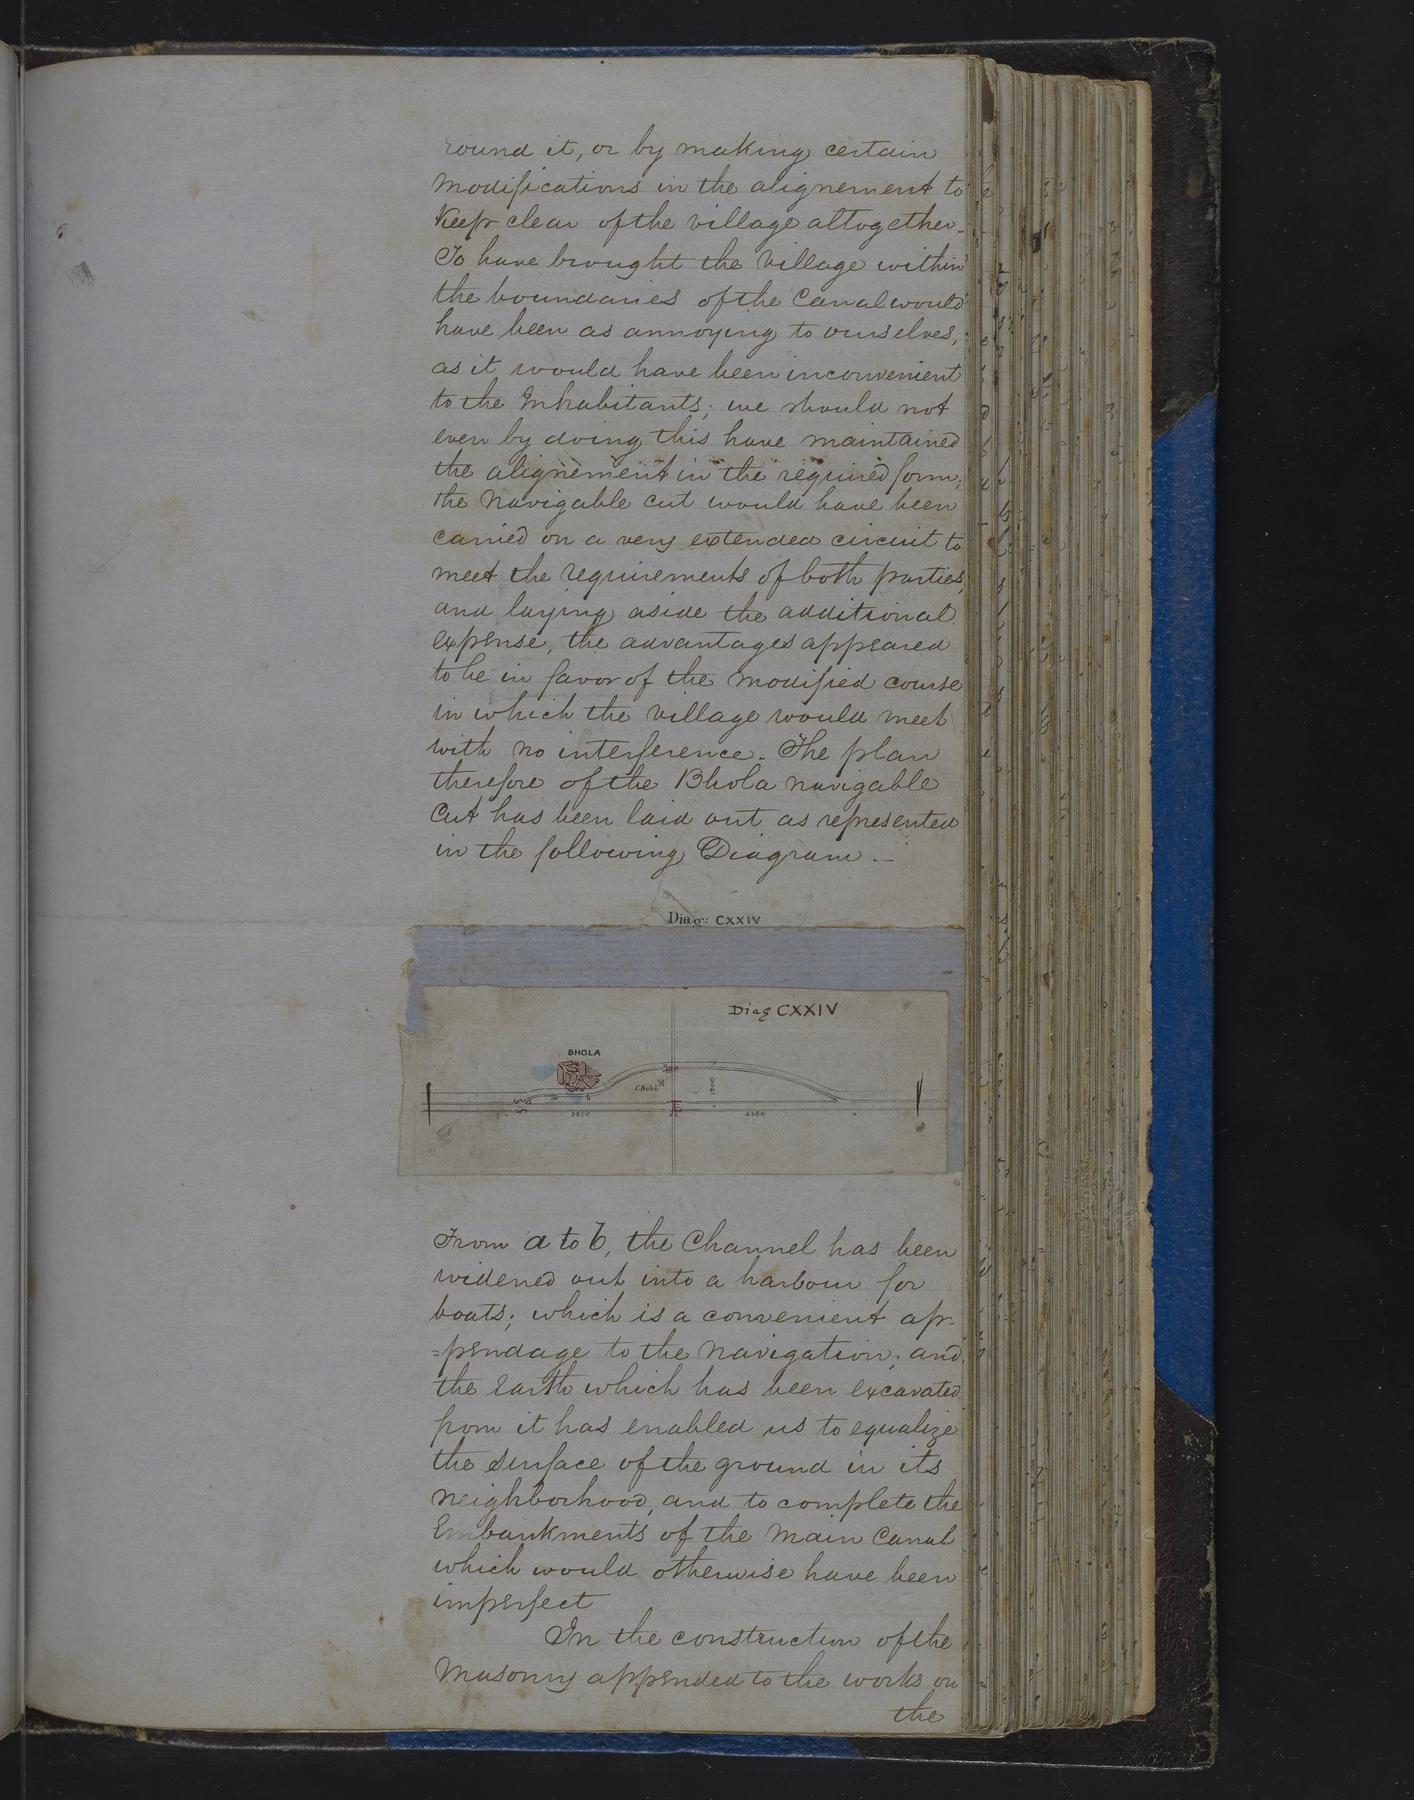 round it, or by making certain
modifications in the alignement to
keep clear of the village altogether.
To have brought the Village within
the boundaries of the Canal would
have been as annoying to ourselves,
as it would have been inconvenient
to the Inhabitants; we should not
even by doing this have maintained
the alignement in the required form;
the navigable cut would have been
carried on a very extended circuit to
meet the requirements of both parties,
and laying aside the additional
expense, the advantages appeared
to be in favor of the modified course
in which the village would meet
with no interference. The plan
therefore of the Bhola navigable
Cut has been laid out as represented
in the following Diagram.-
Diag: CXXIV
Diag CXXIV
BHOLA
Choki
a b
From a to b, the Channel has been
widened out into a harbour for
boats; which is a convenient ap-
=pendage to the Navigation; and
the Earth which has been excavated
from it has enabled us to equalize
the surface of the ground in its
neighborhood, and to complete the
Embankments of the Main Canal
which would otherwise have been
imperfect
In the construction of the
Masonry appended to the works on
the